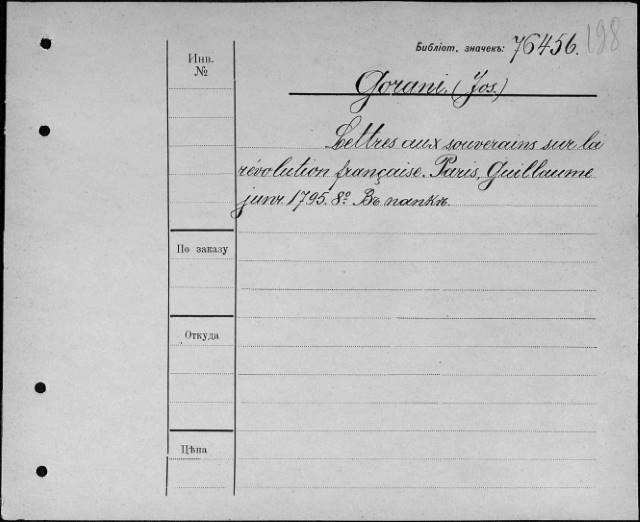 Библіот. значекъ: 76456. 198
Инв.
№
Gorani. (Jos.)
Lettres aux souverains sur la
révolution française. Paris, Guillaume
junr. 1795. 8º. Въ папкѣ.
По заказу
Откуда
Цѣна